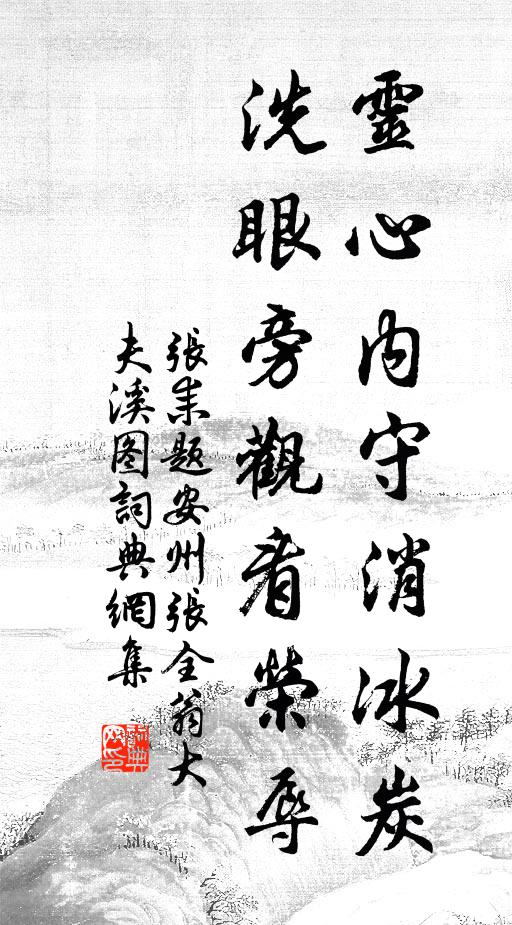 靈心內守消冰炭
洗眼旁觀看榮辱
張耒題安州張全翁大
夫溪图詞典網集